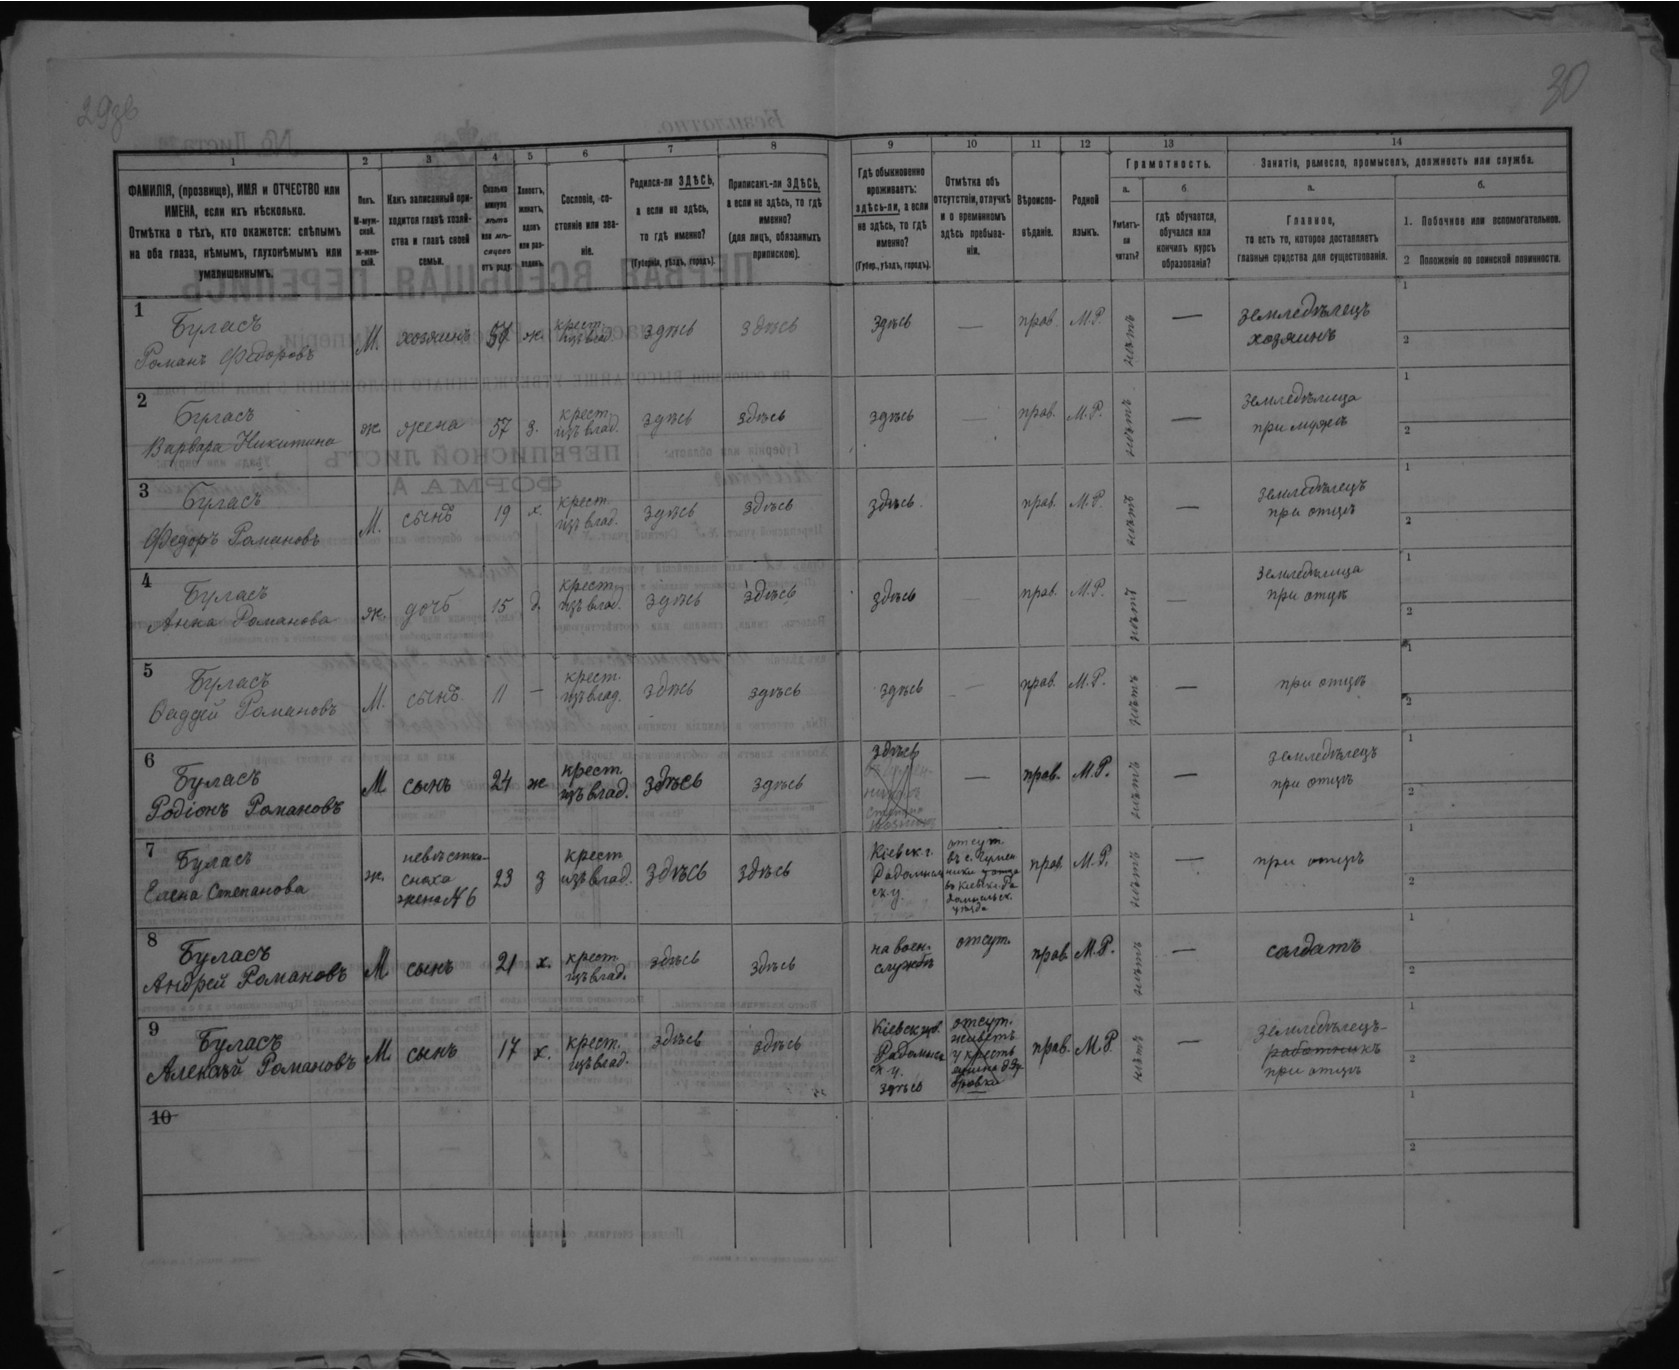 29зв
30
1
2
3
4
5
6
7
8
9
10
11
12
13
14
ФАМИЛІЯ, (прозвище), ИМЯ и ОТЧЕСТВО или
ИМЕНА, если ихъ нѣсколько.
Отмѣтка о тѣхъ, кто окажется: слѣпымъ
на оба глаза, нѣмымъ, глухонѣмымъ или
умалишеннымъ.
Полъ.
М-муж-
ской.
Ж-жен-
скій.
Какъ записанный при-
ходится главѣ хозяй-
ства и главѣ своей
семьи.
Сколько
минуло
лѣтъ
или мѣ-
сяцевъ
отъ роду.
Холостъ,
женатъ,
вдовъ
или раз-
веденъ.
Сословіе, со-
стояніе или зва-
ніе.
Родился-ли ЗДѢСЬ,
а если не здѣсь,
то гдѣ именно?
(Губернія, уѣздъ, городъ).
Приписанъ-ли ЗДѢСЬ,
а если не здѣсь, то гдѣ
именно?
(для лицъ, обязанныхъ
припискою).
Гдѣ обыкновенно
проживаетъ:
здѣсь-ли, а если
не здѣсь, то гдѣ
именно?
(Губер., уѣздъ, городъ).
Отмѣтка объ
отсутствіи, отлучкѣ
и о временномъ
здѣсь пребыва-
ніи.
Вѣроиспо-
вѣданіе.
Родной
языкъ.
Грамотность.
а.
Умѣетъ-
ли
читать?
б.
гдѣ обучается,
обучался или
кончилъ курсъ
образованія?
Занятіе, ремесло, промыселъ, должность или служба.
а.
Главное,
то есть то, которое доставляетъ
главныя средства для существованія.
б.
1. Побочное или вспомогательное.
2 Положеніе по воинской повинности.
1
Буласъ
Романъ Федоровъ
М.
хозяинъ
ж.
крест.
изъ влад.
здѣсь
здѣсь
здѣсь
—
прав.
М.Р.
нѣтъ
—
земледѣлецъ
хозяинъ
1
2
2
Буласъ
Варвара Никитина
ж
жена
57
з.
крест.
изъ влад.
здѣсь
здѣсь
здѣсь
—
прав.
М.Р.
нѣтъ
—
земледѣлица
при мужѣ
1
2
3
Буласъ
Федоръ Романовъ
М.
сынъ
19
х
крест.
изъ влад.
здѣсь
здѣсь
здѣсь
прав.
М.Р.
нѣтъ
—
земледѣлецъ
при отцѣ
1
2
4
Буласъ
Анна Романова
ж.
дочь
15
крест.
изъ влад.
здѣсь
здѣсь
здѣсь
—
прав.
М.Р.
нѣтъ
—
земледѣлица
при отцѣ
1
2
5
Буласъ
Фаддей Романовъ
М.
сынъ
11
—
крест.
изъ влад.
здѣсь
здѣсь
здѣсь
—
прав.
М.Р.
нѣтъ
—
при отцѣ
1
2
6
Буласъ
Родіонъ Романовъ
М
сынъ
24
ж
крест.
изъ влад.
здѣсь
здѣсь
здѣсь
—
прав.
М.Р.
нѣтъ
—
земледѣлецъ
при отцѣ
1
2
7
Буласъ
Елена Степанова
ж.
невѣстка-
снаха
жена № 6
23
з
крест
изъ влад.
здѣсь
здѣсь
Кіевск. г.
Радомысл
ск. у.
отсут.
въ с.
прав
М.Р.
нѣтъ
—
при отцѣ
1
2
8
Буласъ
Андрей Романовъ
М
сынъ
21
х.
крест.
изъ влад.
здѣсь
здѣсь
на воен.
службѣ
отсут.
прав
М.Р.
нѣтъ
—
солдатъ
1
2
9
Буласъ
Алексѣй Романовъ
М.
сынъ
17
х.
крест.
изъ влад.
здѣсь
здѣсь
Кіевск. губ.
Радомысл
к. у.
здѣсь
отсут.
живетъ
у кресть
прав.
М.Р.
нѣтъ
—
земледѣлецъ-
работникъ
при отцѣ
1
2
10
1
2